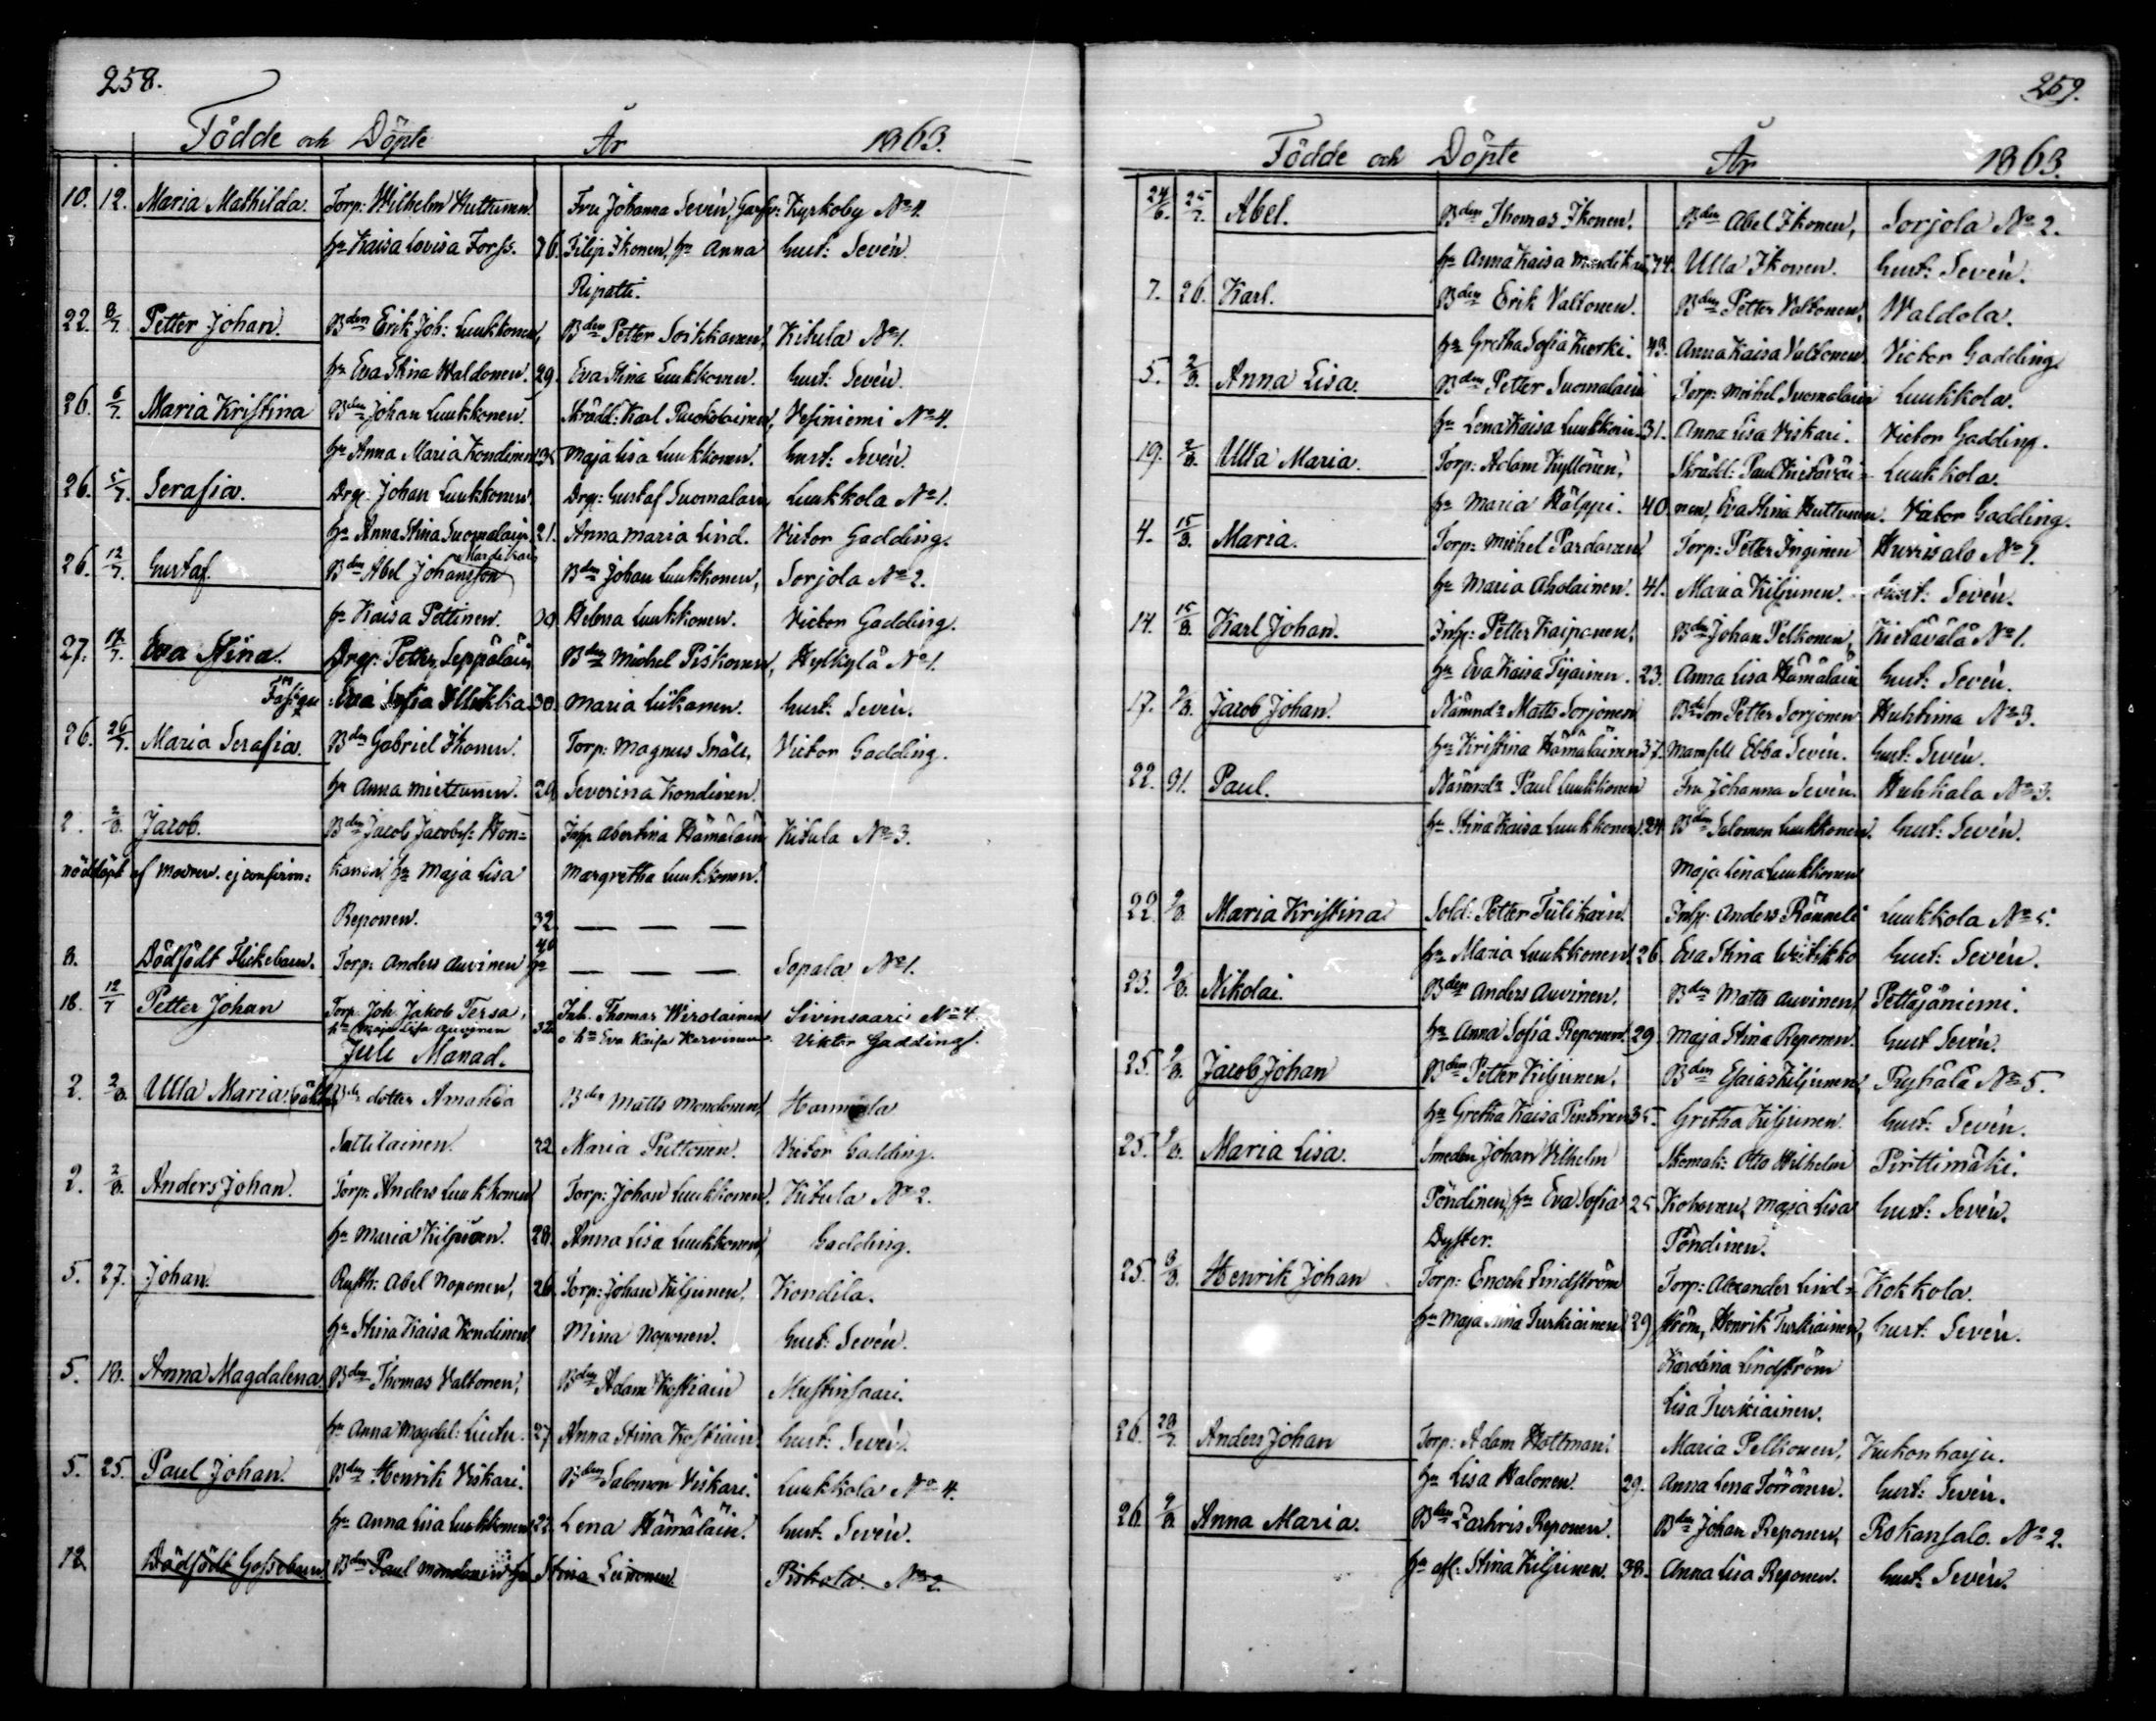 258.
Födde och Döpte År 1863.
10. 12. Maria Mathilda. Torp: Wilhelm Huttunen. Fru Johanna Sevén, Garfv: Kyrkoby No 4.
hu Kaisa Lovisa Forss. 36. Filip Ikonen, hu Anna Gust: Sevén.
Ripatti.
22. 8/7. Petter Johan. Bden Erik Joh: Luukkonen, Bden Petter Soikkanen, Kitula No 1.
hu Eva Stina Waldonen. 29. Eva Stina Luukkonen. Gust: Sevén.
26. 6/7. Maria Kristina Bden Johan Luukkonen. Skrädd: Karl Puokolainen, Vesiniemi No 4.
hu Anna Maria Kondinen 35 Maja Lisa Luukkonen. Gust: Sevén.
26. 5/7. Serafia. Drg: Johan Luukkonen. Drg: Gustaf Suomalain Luukkola No 1.
hu Anna Stina Suomalain. 21. Anna Maria Lind. Victor Gadding.
26. 12/7. Gustaf. Bden Abel Johansson Bden Johan Luukkonen, Sorjola No 2.
hu Kaisa Pettinen. Helena Luukkonen. Victor Gadding.
27. Eva Stina. Drg: Petter Seppäläin Bden Michel Piskonen, Hylkylä No 1.
Eva Sofia 30. Maria Liikanen. Gust: Sevén.
26. 26/7. Maria Serafia. Bden Gabriel Ikonen. Torp: Magnus Snäll, Victor Gadding.
hu Anna Miettunen. 29 Severina Kondinen.
2. 2/8. Jacob. Bden Jacob Jacobss: Hon= Albertina Hämäläin Kitula No 3.
nöddöpt af modren. ej confirm: kanen hu Maja Lisa Margretha Luukkonen.
Reponen. 32 — — —
8. Dödfödt Flickebarn. Torp: Anders Auvinen hu 40 — — — Sopala No 1.
18. 12/7 Petter Johan Torp. Joh. Jakob Tersa, Inh. Thomas Wirolainen Sivinsaari No 4.
hu Maja Lisa Auvinen 32 o hu Eva Kaisa Karvinen. Viktor Gadding.
Juli Månad.
2. 2/8. Ulla Maria. Bde dotter Amalia Bden Matts Mondonen, Hammala
Sattilainen. 22 Maria Puttonen. Victor Gadding.
2. 2/8. Anders Johan. Torp: Anders Luukkonen Torp: Johan Luukkonen. Kitula No 2.
hu Maria Kiljunen. 28. Anna Lisa Luukkonen, Gadding.
5. 27. Johan. Rusth: Abel Noponen, 26. Torp: Johan Kiljunen, Kondila.
hu Stina Kaisa Kondinen Mina Noponen. Gust: Sevén.
5. 18. Anna Magdalena. Bden Thomas Valtonen, Bden Adam Kostiain Mustinsaari.
hu Anna Magdal: Liutu. 27 Anna Stina Kostiain. Gust: Sevén.
5. 25. Paul Johan. Bden Henrik Viskari. Bden Salomon Viskari. Luukkola No 4.
hu Anna Lisa Luukkonen 22. Lena Hämäläin. Gust: Sevén.
12. Dödfödt Gossebarn. Bden Paul Mondonen hu Stina Leinonen. Piskola No 2.
259.
Födde och Döpte År 1863.
24/6. 25/7. Abel. Bden Thomas Ikonen. Bden Abel Ikonen, Sorjola No 2.
hu Anna Kaisa 44. Ulla Ikonen. Gust: Sevén.
7. 26. Karl. Bden Erik Valtonen. Bden Petter Valtonen, Waldola.
hu Gretha Sofia Kurki. 43. Anna Kaisa Valtonen. Victor Gadding.
5. 2/8. Anna Lisa. Bden Petter Suomalain Torp: Michel Suomalain Luukkola.
hu Lena Kaisa Luukkoin. 31. Anna Lisa Viskari. Victor Gadding.
19. 2/8. Ulla Maria. Torp: Adam Kyllönen, Skrädd: Paul Kietäväi= Luukkola.
hu Maria Hälppi. 40. nen, Eva Stina Huttunen. Victor Gadding.
4. 15/8. Maria. Torp: Michel Pardanen Torp: Petter Inginen Hurisalo No 1.
hu Maria Aholainen. 41. Maria Kiljunen. Gust: Sevén.
14. 15/8. Karl Johan. Inh: Petter Kaiponen, Bden Johan Pelkonen, Kietävälä No 1.
hu Eva Kaisa Tijainen. 23. Anna Lisa Hämäläin Gust: Sevén.
17. Jacob Johan. Nämnd: Matts Sorjonen Bdeson Petter Sorjonen Huhtima No 3.
hu Kristina Hämäläinen 37. Mamsell Ebba Sevén. Gust: Sevén.
22. 31. Paul. Nämnd: Paul Luukkonen Fru Johanna Sevén. Huhkala No 3.
hu Stina Kaisa Luukkonen. 24. Bden Salomon Luukkonen. Gust: Sevén.
Maja Lena Luukkonen
22. 2/8. Maria Kristina Sold: Petter Tulikain. Inh: Anders Rämeli Luukkola No 5.
hu Maria Luukkonen. 26. Eva Stina Weitikko Gust: Sevén.
23. 2/8. Nikolai. Bden Anders Auvinen. Bden Matts Auvinen, Pettäjäniemi.
hu Anna Sofia Reponen. 29. Maja Stina Reponen. Gust Sevén.
25. 2/8. Jacob Johan Bden Petter Kiljunen. Bden Esaias Kiljunen, Ryhälä No 5.
hu Gretha Kaisa Penttinen 35. Gretha Kiljunen. Gust: Sevén.
25. Maria Lisa. Smeden Johan Vilhelm Skomak: Otto Wilhelm Pirttimäki.
Pöndinen, hu Eva Sofia 25 Kohonen, Maja Lisa Gust: Sevén.
Dyster. Pöndinen.
25. 3/8. Henrik Johan Torp: Enoch Lindström Torp: Alexander Lind= Kokkola.
hu Maja Stina Turkiainen 29 ström, Henrik Turkiainen, Gust: Sevén.
Karolina Lindström
Lisa Turkiainen.
26. 28/7. Anders Johan Torp: Adam Holtman. Maria Pellionen, Kukonharju.
hu Lisa Halonen. 29. Anna Lena Törrönen. Gust: Sevén.
26. 2/8. Anna Maria. Bden Zachris Reponen. Bden Johan Reponen, Rokansalo. No 2.
hu afl: Stina Kiljunen. 38. Anna Lisa Reponen. Gust: Sevén.